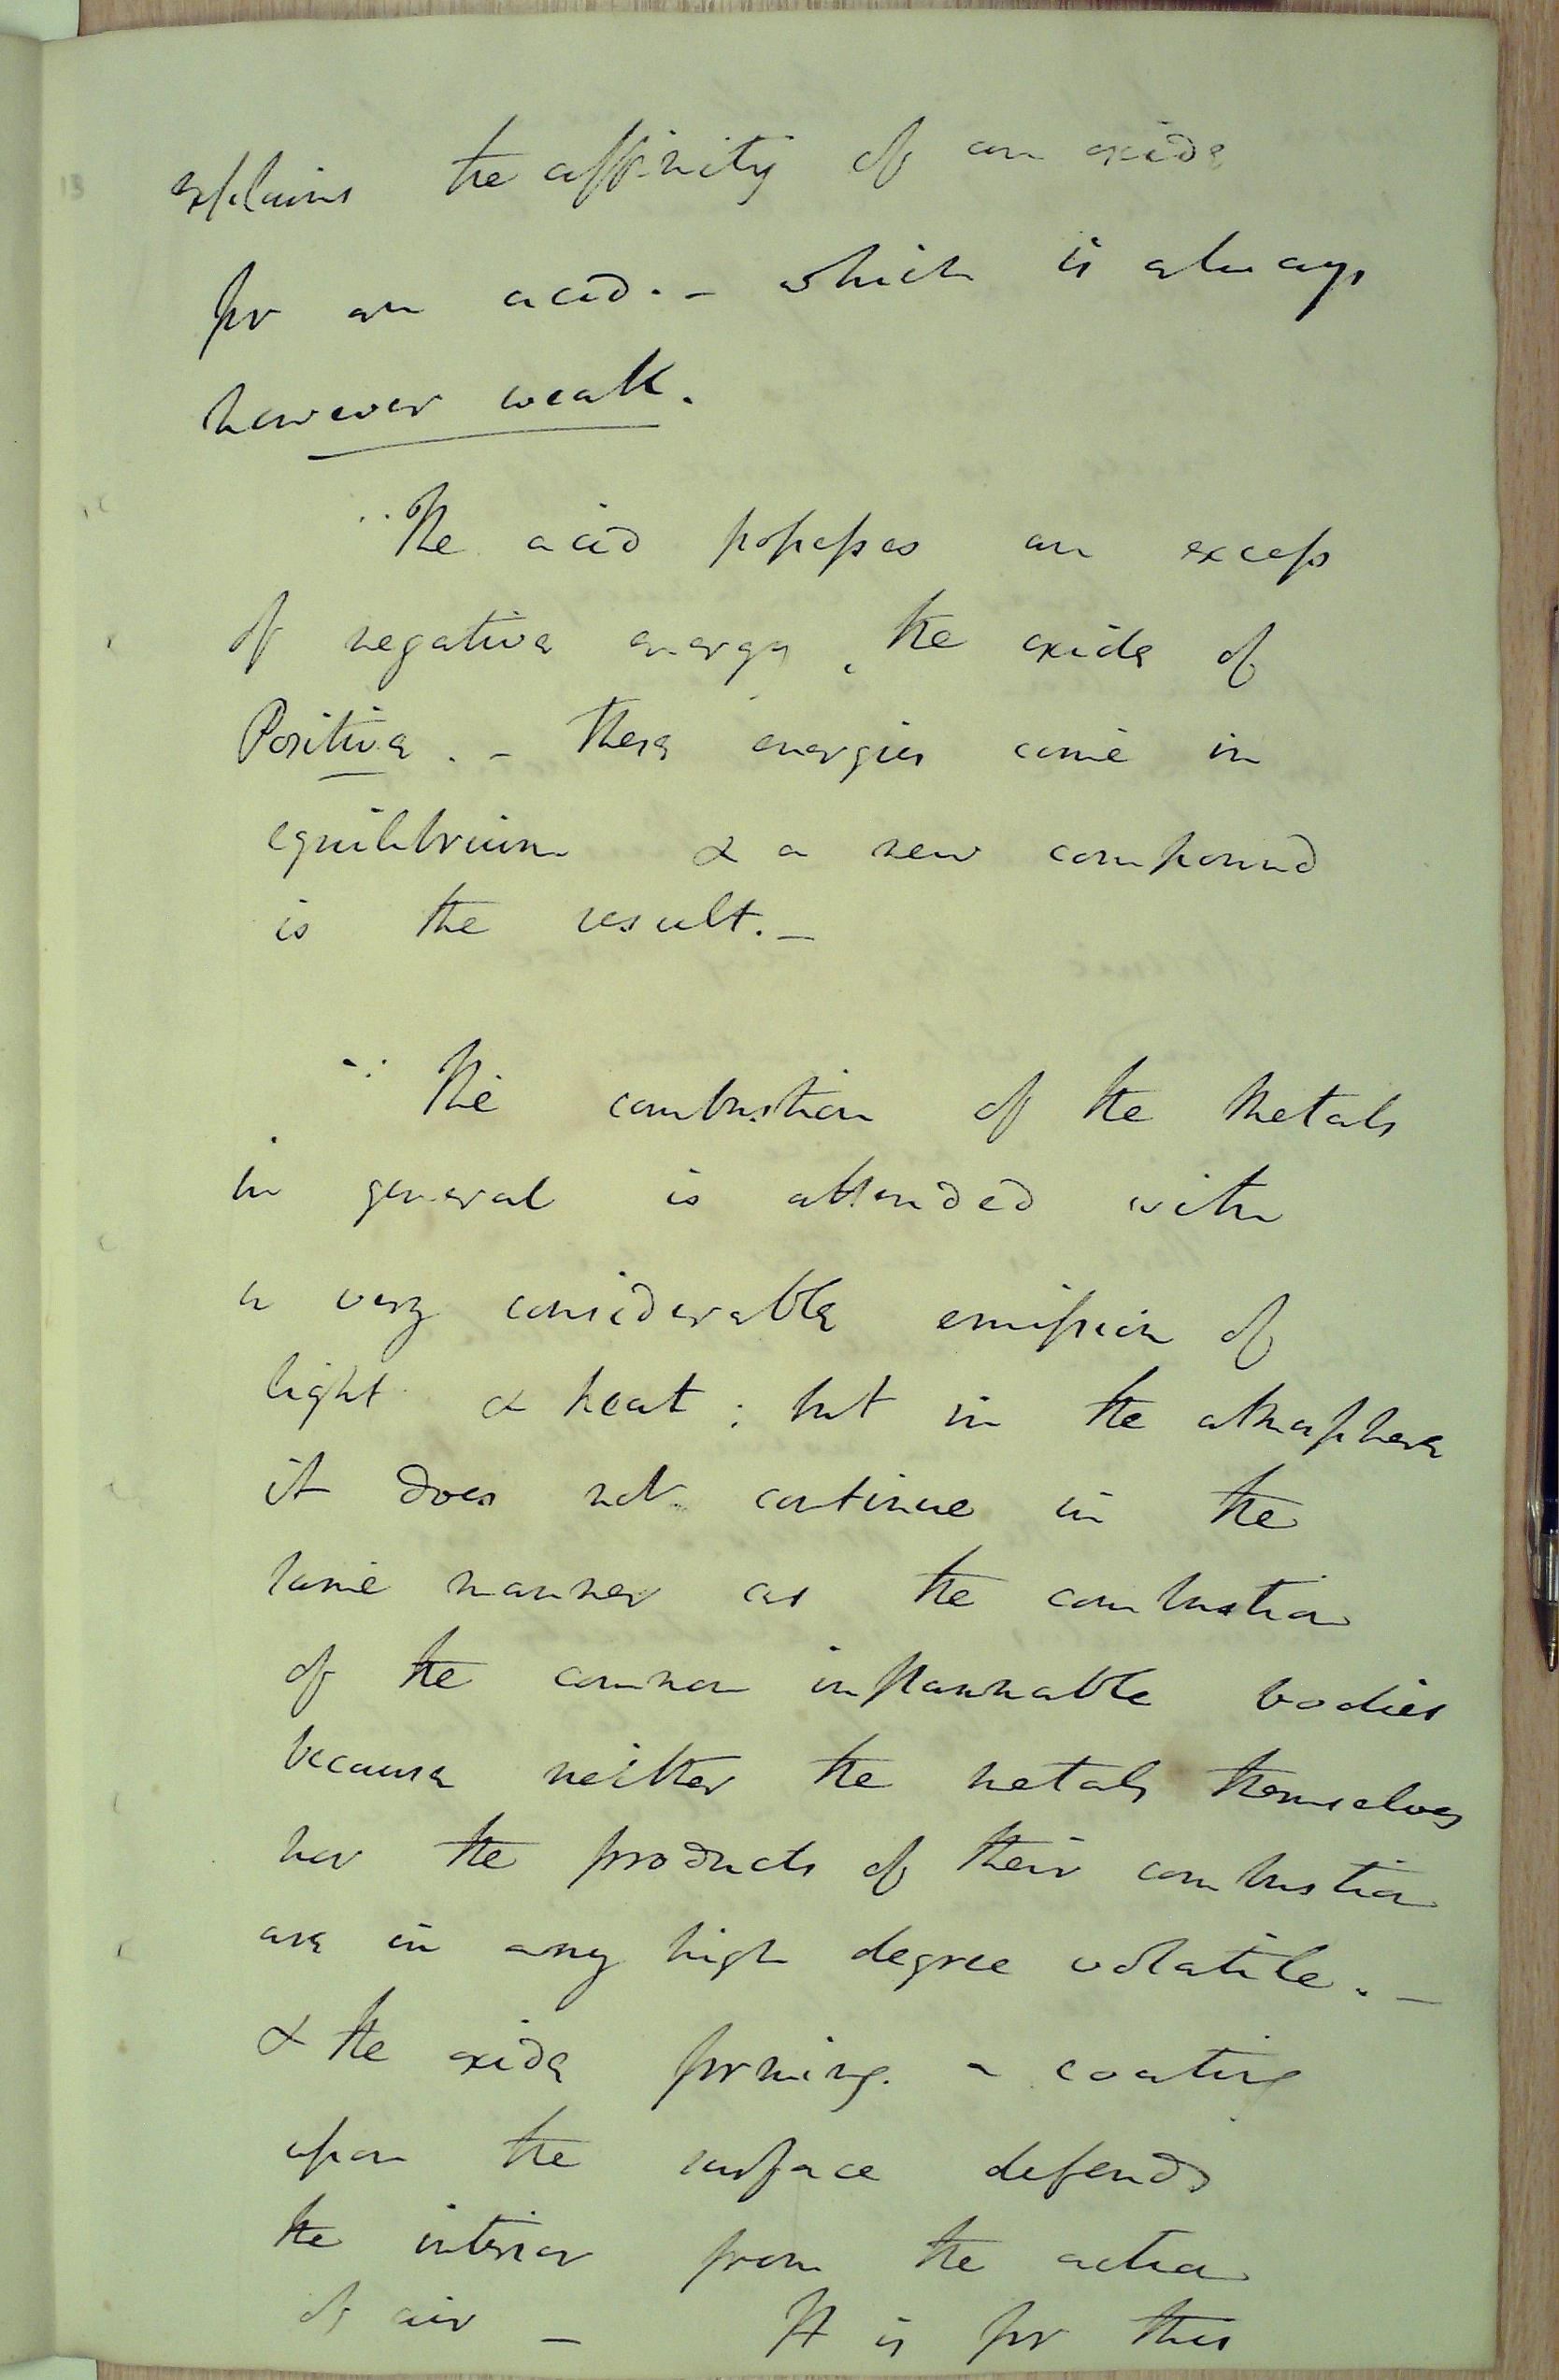 explains the affinity of an oxide
for an acid. - which is always
however weak.
The acid possesses an excess
of negative energy, the oxide of
Positive. - These energies come in
equilibrium & a new compound
is the result. -
The combustion of the Metals
in general is attended with
a very considerable emission of
light & heat; but in the atmosphere
it does not continue in the
same manner as the combustion
of the common inflammable bodies
because neither the metals themselves
nor the products of their combustion
are in any high degree volatile. -
& the oxide forming a coating
upon the surface defends
the interior from the action
of air - It is for this